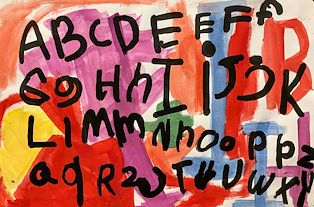 ABCDEEFf
GgHhIiJjK
LlMmNnOoPpz
QqRrTUUWXY